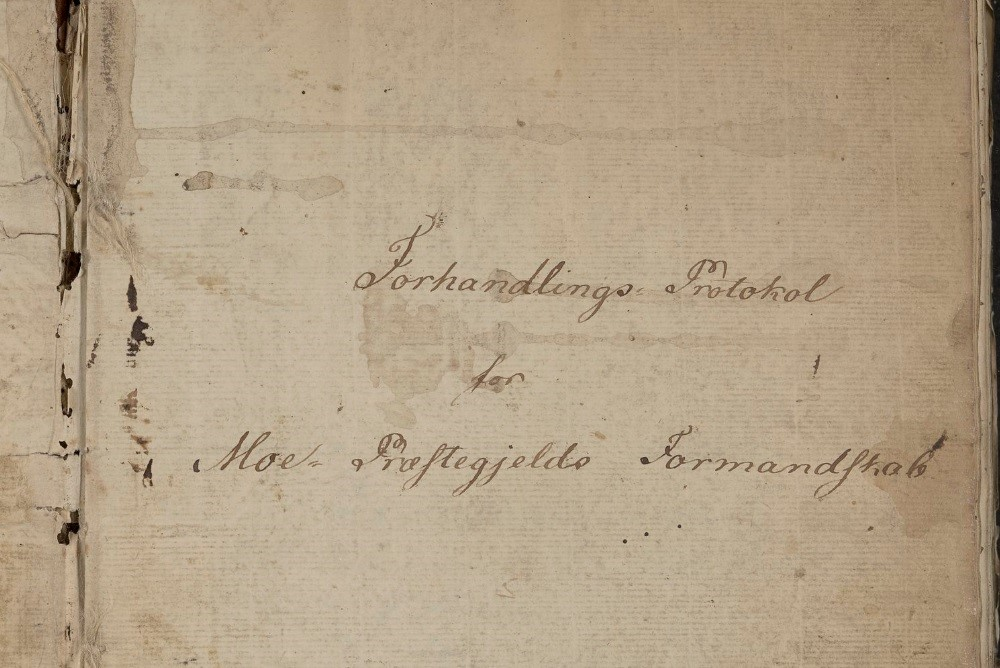 Forhandlings- Protokol
for
Moe- Præstegjelds Formandskab